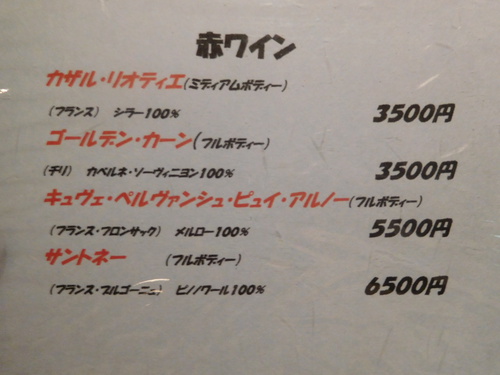 赤ワイン
カザル・リオティエ(ミディアムボディー)
(フランス) シラー100% 3500円
ゴールデン・カーン(フルボディー)
(チリ) カベルネ・ソーヴィニヨン100% 3500円
キュヴェ・ペルヴァンシュ・ピュイ・アルノー(フルボディー)
(フランス・フロンサック) メルロー100% 5500円
サントネー (フルボディー)
(フランス・ブルゴーニュ) ピノノワール100% 6500円